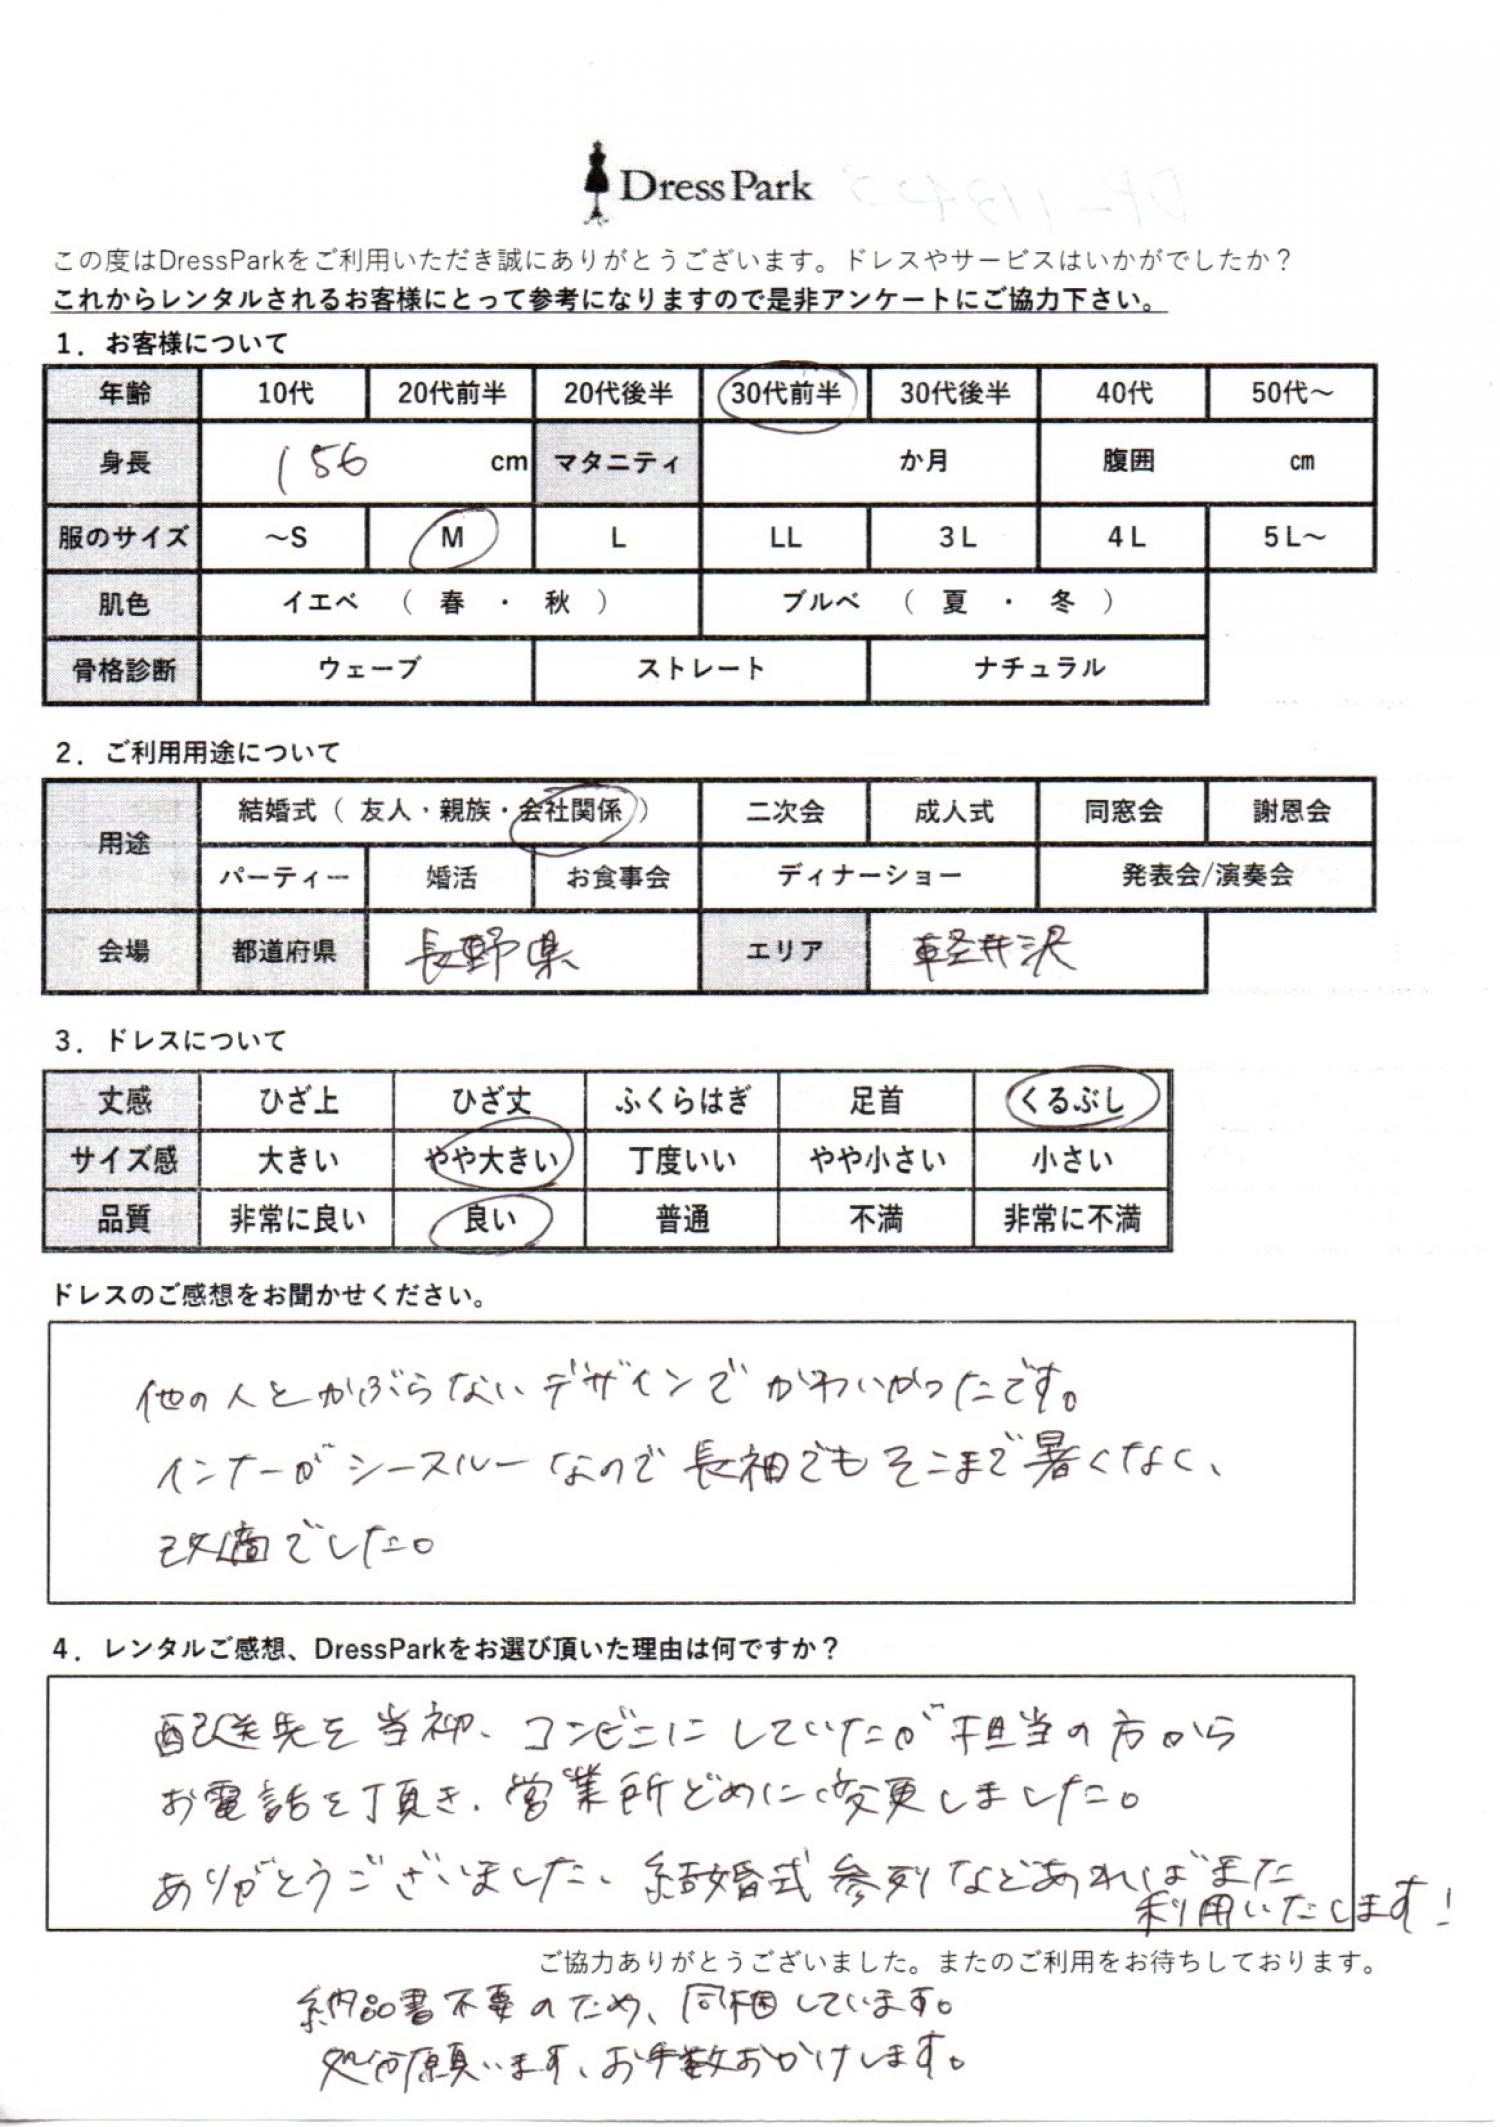 Dress Park
この度はDressParkをご利用いただき誠にありがとうございます。ドレスやサービスはいかがでしたか？
これからレンタルされるお客様にとって参考になりますので是非アンケートにご協力下さい。
1．お客様について
年齢 10代 20代前半 20代後半 30代前半 30代後半 40代 50代～
身長 156 cm マタニティ か月 腹囲 ㎝
服のサイズ ～S M L LL 3L 4L 5L～
肌色 イエベ （ 春 ・ 秋 ） ブルベ （ 夏 ・ 冬 ）
骨格診断 ウェーブ ストレート ナチュラル
2．ご利用用途について
用途 結婚式（ 友人・親族・会社関係 ） 二次会 成人式 同窓会 謝恩会
パーティー 婚活 お食事会 ディナーショー 発表会/演奏会
会場 都道府県 長野県 エリア 軽井沢
3．ドレスについて
丈感 ひざ上 ひざ丈 ふくらはぎ 足首 くるぶし
サイズ感 大きい やや大きい 丁度いい やや小さい 小さい
品質 非常に良い 良い 普通 不満 非常に不満
ドレスのご感想をお聞かせください。
他の人とかぶらないデザインでかわいかったです。
インナーがシースルーなので長袖でもそこまで暑くなく、
でした。
4．レンタルご感想、DressParkをお選び頂いた理由は何ですか？
配送先を当初、コンビニにしていたが担当の方から
お電話を頂き、営業所どめに変更しました。
ありがとうございました、結婚式参列などあればまた
利用いたします！
ご協力ありがとうございました。またのご利用をお待ちしております。
納品書不要のため、同梱しています。
処分願います、お手数おかけします。